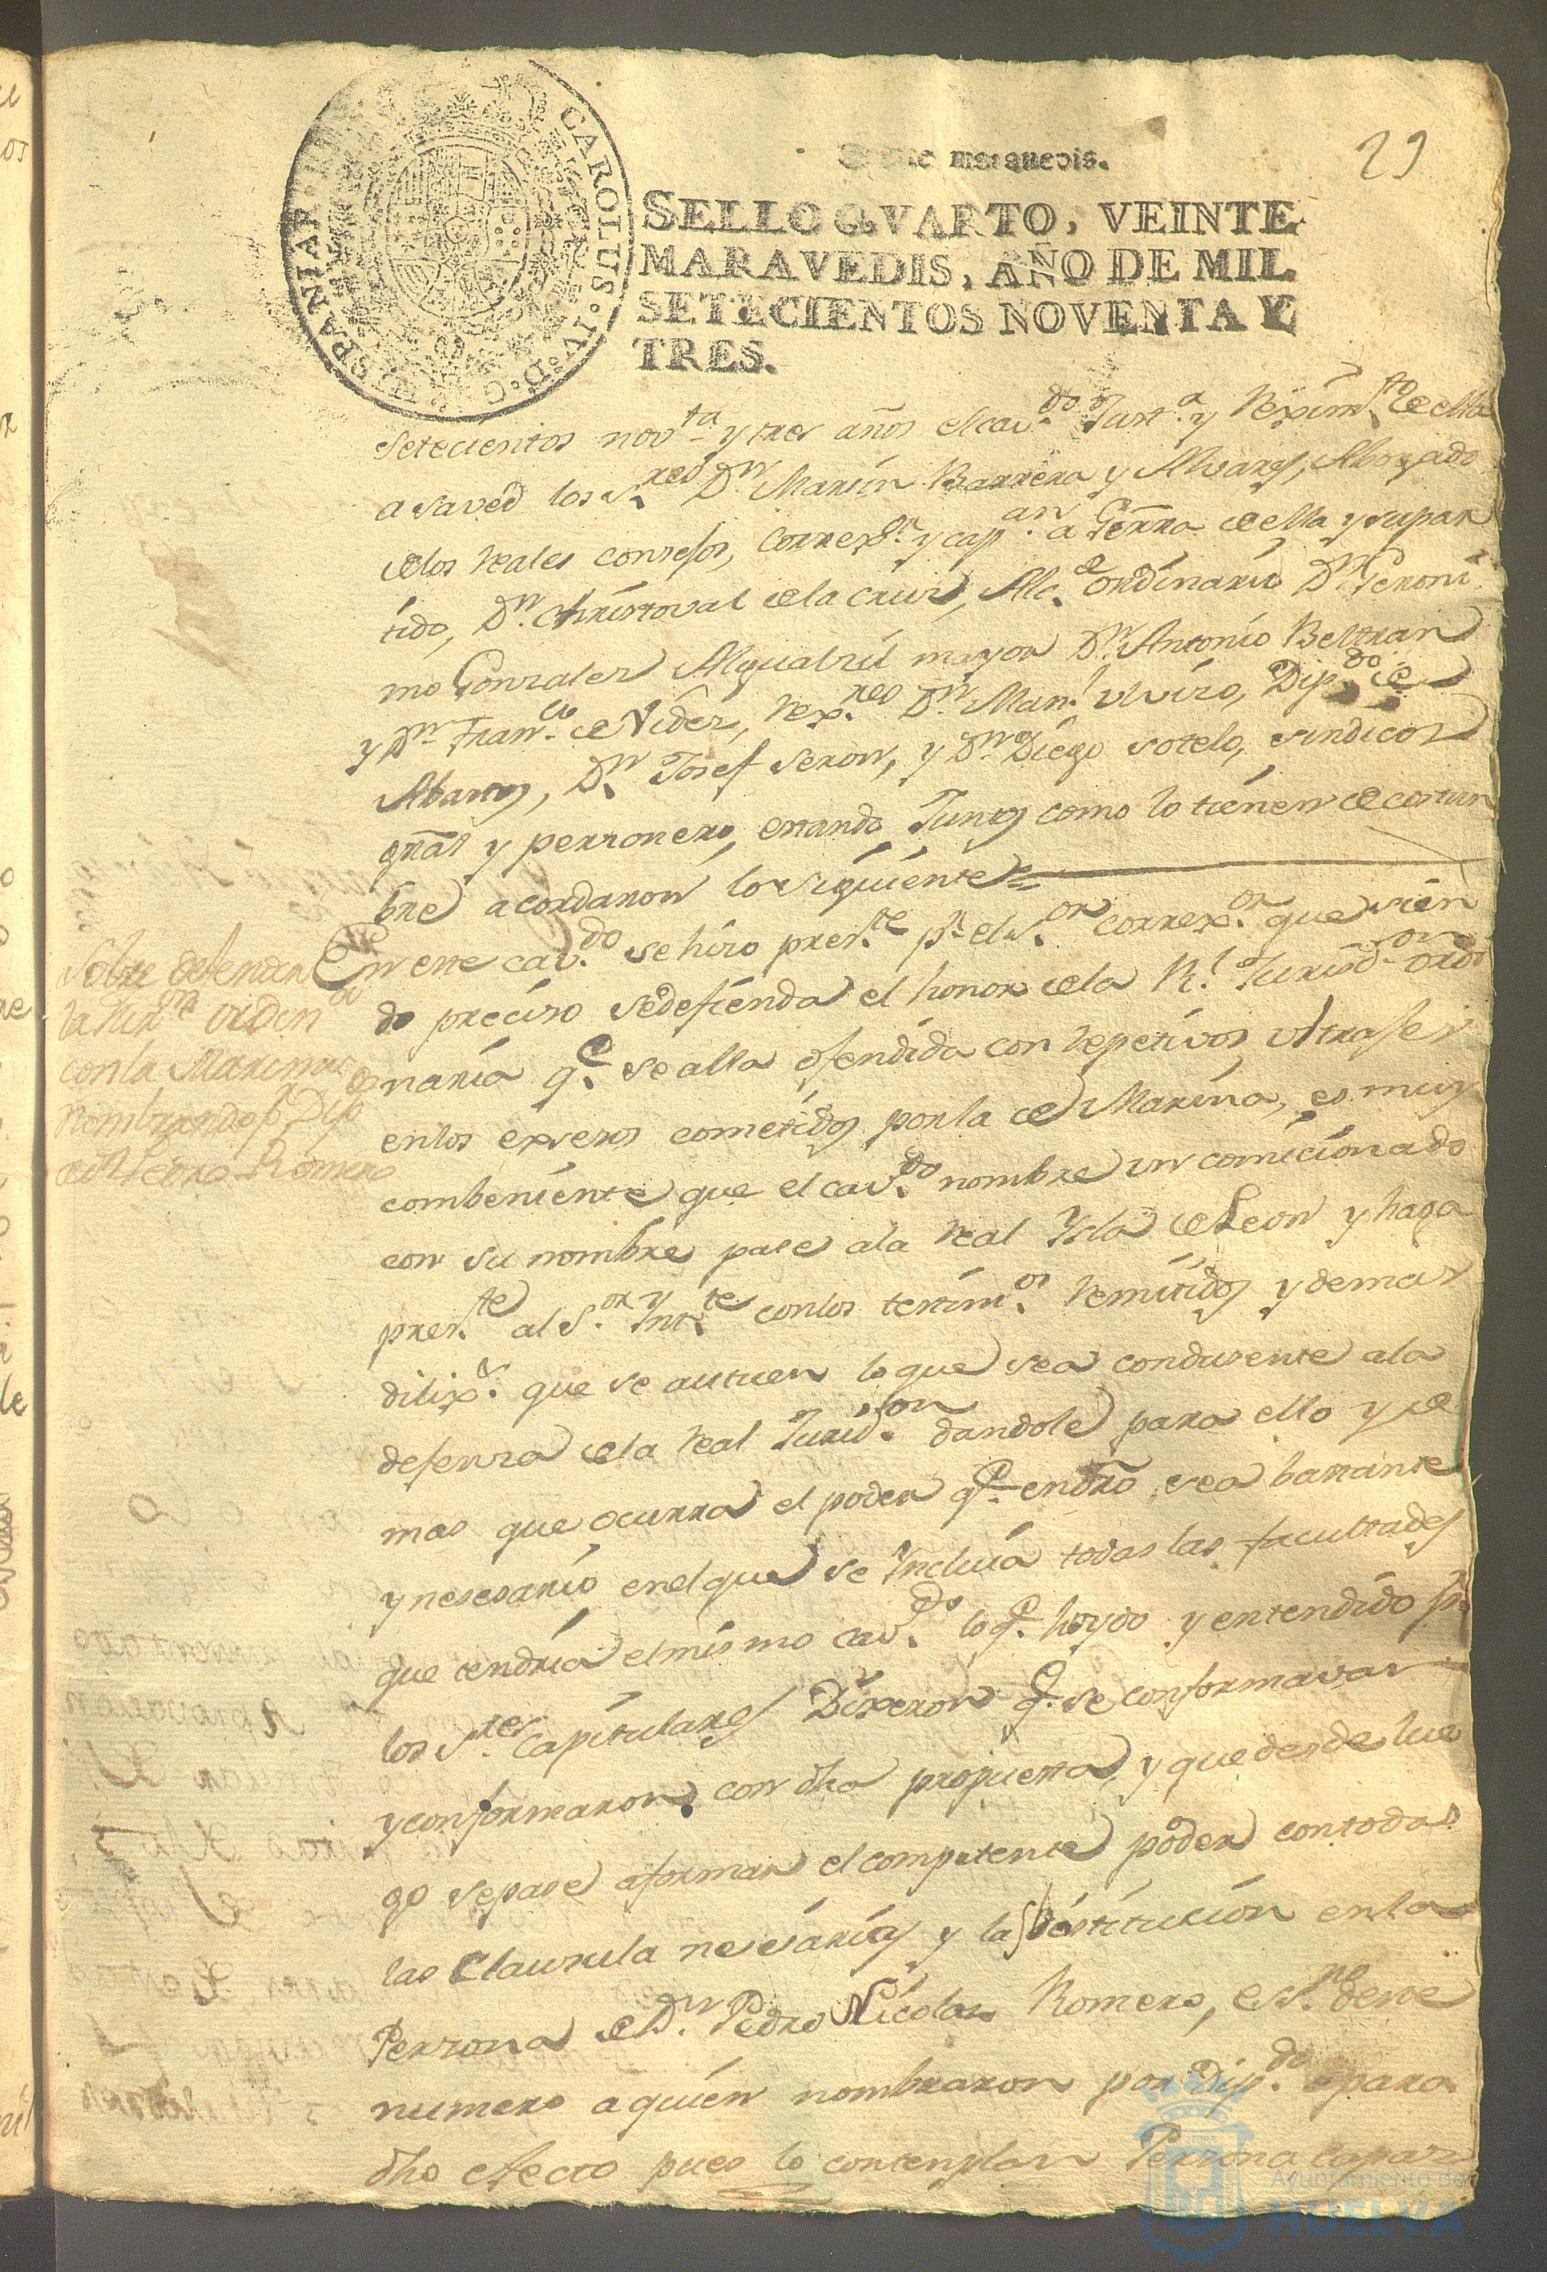 29
maravedis.
SELLO QVARTO, VEINTE
MARAVEDIS, AÑO DE MIL
SETECIENTOS NOVENTA Y
TRES.
CAROLUS·IV·D·G·HISPANIAR·
setecientos nov.ta y tres años el cav.do Just.a y Rexim.to de ella
a saved los S.res D.n Martin Barrera y Alvares, Abogado
de los Reales consejos, Correx.or y cap.an a Gerra de ella y su par
tido, D.n Christoval de la Cruz, Alc.e ordinario D.n Geroni
mo Gonzales Alguatzil mayor D.n Antonio Beltran
y D.n Fran.co de Vides, Rex.res D.n Man.l Viviro, Dip.do de
Abastos, D.n Josef Seron, y D.n Diego Sotelo, sindicos
gral y personero, estando Juntos como lo tienen de costum
bre acordaron lo siguiente =
Sobre defender
la Jur.on ordin.a
con la Marina
nombrando p.r Dip.do
a D.n Pedro Romero
En este cav.do se hizo pres.te p.r el S.or correx.or que sien
do preciso se defienda el honor de la R.l Jurisd.on ordi
naria q.e se alla ofendida con repetivos ultrajes
en los exsesos cometidos por la de Marina, es muy
combeniente que el cav.do nombre un comicionado
con su nombre pase a la Real Ysla de Leon y haga
pres.te al S.or Ynt.te con los testim.os remitidos y demas
dilix.s que se autuen lo que sea condusente a la
defensa de la Real Jurisd.on dandole para ello y de
mas que ocurra el poder q.e en dro sea bastante
y nesesario en el que se Yncluia todas las facultades
que tendria el mismo cav.do lo q.e hoydo y entendido p.r
los S.res Capitulares Dixeron q.e se conformavan
y conformaron con dha propuesta, y que desde lue
go se pase a formar el competente poder con todas
las Clausula nesesarias y la sostitucion en la
Persona de D.n Pedro Nicolas Romero, ess.no de este
numero a quien nombraron por Dip.do para
dho efecto pues lo contemplan Persona capaz
Ayuntamiento de
HUELVA